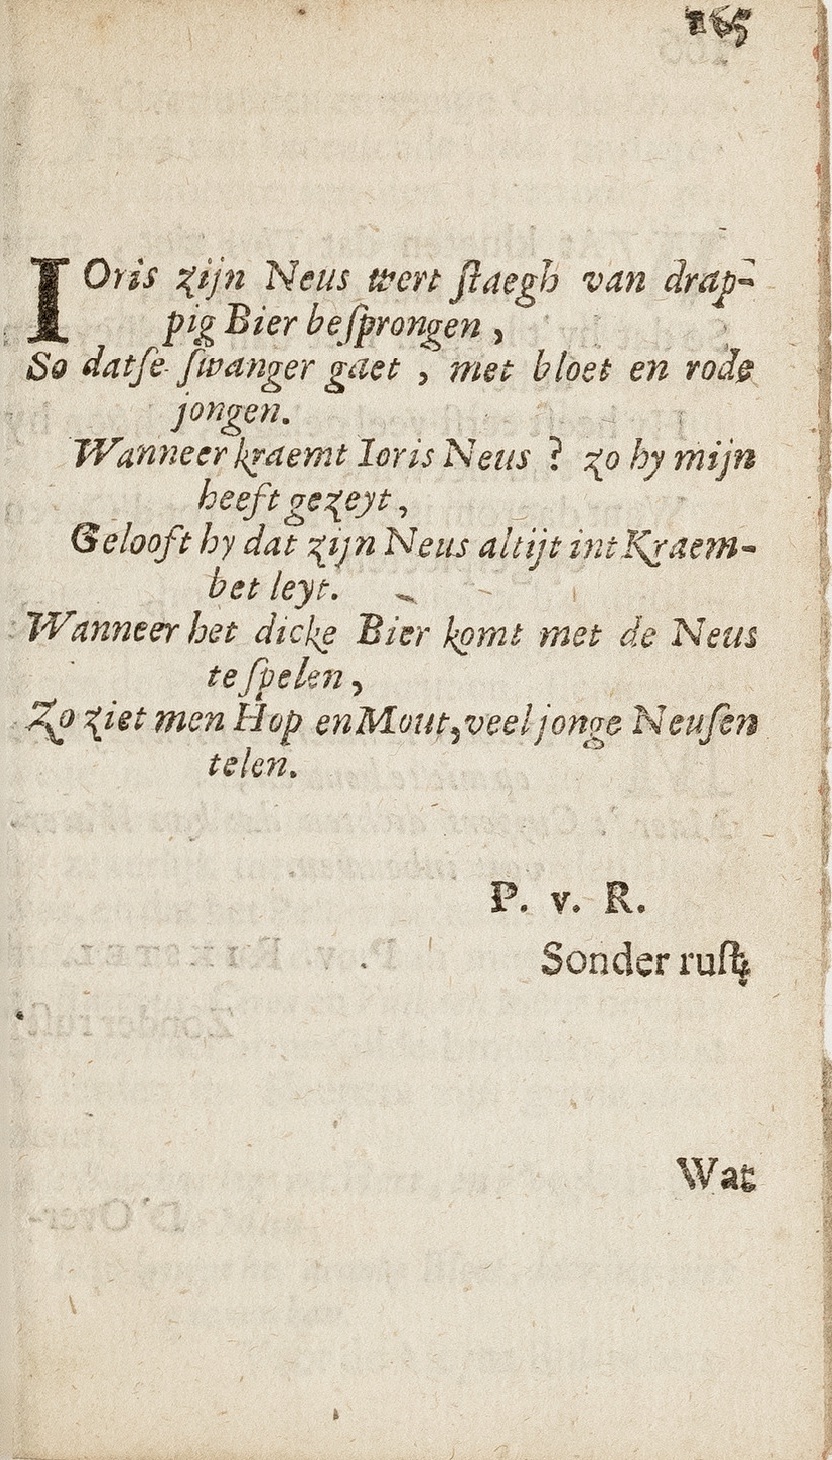 165
IOris zijn Neus wert ſtaegh van drap-
pig Bier beſprongen,
So datſe ſwanger gaet, met bloet en rode
jongen.
Wanneer kraemt Ioris Neus? zo hy mijn
heeft gezeyt,
Gelooft hy dat zijn Neus altijt int Kraem-
bet leyt.
Wanneer het dicke Bier komt met de Neus
te ſpelen,
Zo ziet men Hop en Mout, veel jonge Neuſen
telen.
P. v. R.
Sonder ruſt.
Wat